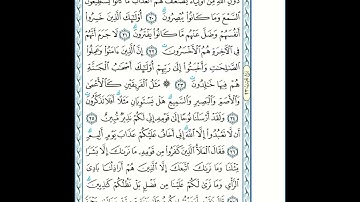 دُونِ ٱللَّهِ مِنْ أَوْلِيَآءَ يُضَٰعَفُ لَهُمُ ٱلْعَذَابُ مَا كَانُوا۟ يَسْتَطِيعُونَ
ٱلسَّمْعَ وَمَا كَانُوا۟ يُبْصِرُونَ ٢٠ أُو۟لَٰٓئِكَ ٱلَّذِينَ خَسِرُوٓا۟
أَنفُسَهُمْ وَضَلَّ عَنْهُم مَّا كَانُوا۟ يَفْتَرُونَ ٢١ لَا جَرَمَ أَنَّهُمْ
فِى ٱلْءَاخِرَةِ هُمُ ٱلْأَخْسَرُونَ ٢٢ إِنَّ ٱلَّذِينَ ءَامَنُوا۟ وَعَمِلُوا۟
ٱلصَّٰلِحَٰتِ وَأَخْبَتُوٓا۟ إِلَىٰ رَبِّهِمْ أُو۟لَٰٓئِكَ أَصْحَٰبُ ٱلْجَنَّةِ
هُمْ فِيهَا خَٰلِدُونَ ٢٣ ۞ مَثَلُ ٱلْفَرِيقَيْنِ كَٱلْأَعْمَىٰ
وَٱلْأَصَمِّ وَٱلْبَصِيرِ وَٱلسَّمِيعِ هَلْ يَسْتَوِيَانِ مَثَلًا أَفَلَا تَذَكَّرُونَ
٢٤ وَلَقَدْ أَرْسَلْنَا نُوحًا إِلَىٰ قَوْمِهِۦٓ إِنِّى لَكُمْ نَذِيرٌ مُّبِينٌ ٢٥
أَن لَّا تَعْبُدُوٓا۟ إِلَّا ٱللَّهَ إِنِّىٓ أَخَافُ عَلَيْكُمْ عَذَابَ يَوْمٍ أَلِيمٍ
٢٦ فَقَالَ ٱلْمَلَأُ ٱلَّذِينَ كَفَرُوا۟ مِن قَوْمِهِۦ مَا نَرَىٰكَ إِلَّا بَشَرًا
مِّثْلَنَا وَمَا نَرَىٰكَ ٱتَّبَعَكَ إِلَّا ٱلَّذِينَ هُمْ أَرَاذِلُنَا بَادِىَ
ٱلرَّأْىِ وَمَا نَرَىٰ لَكُمْ عَلَيْنَا مِن فَضْلٍۭ بَلْ نَظُنُّكُمْ كَٰذِبِينَ